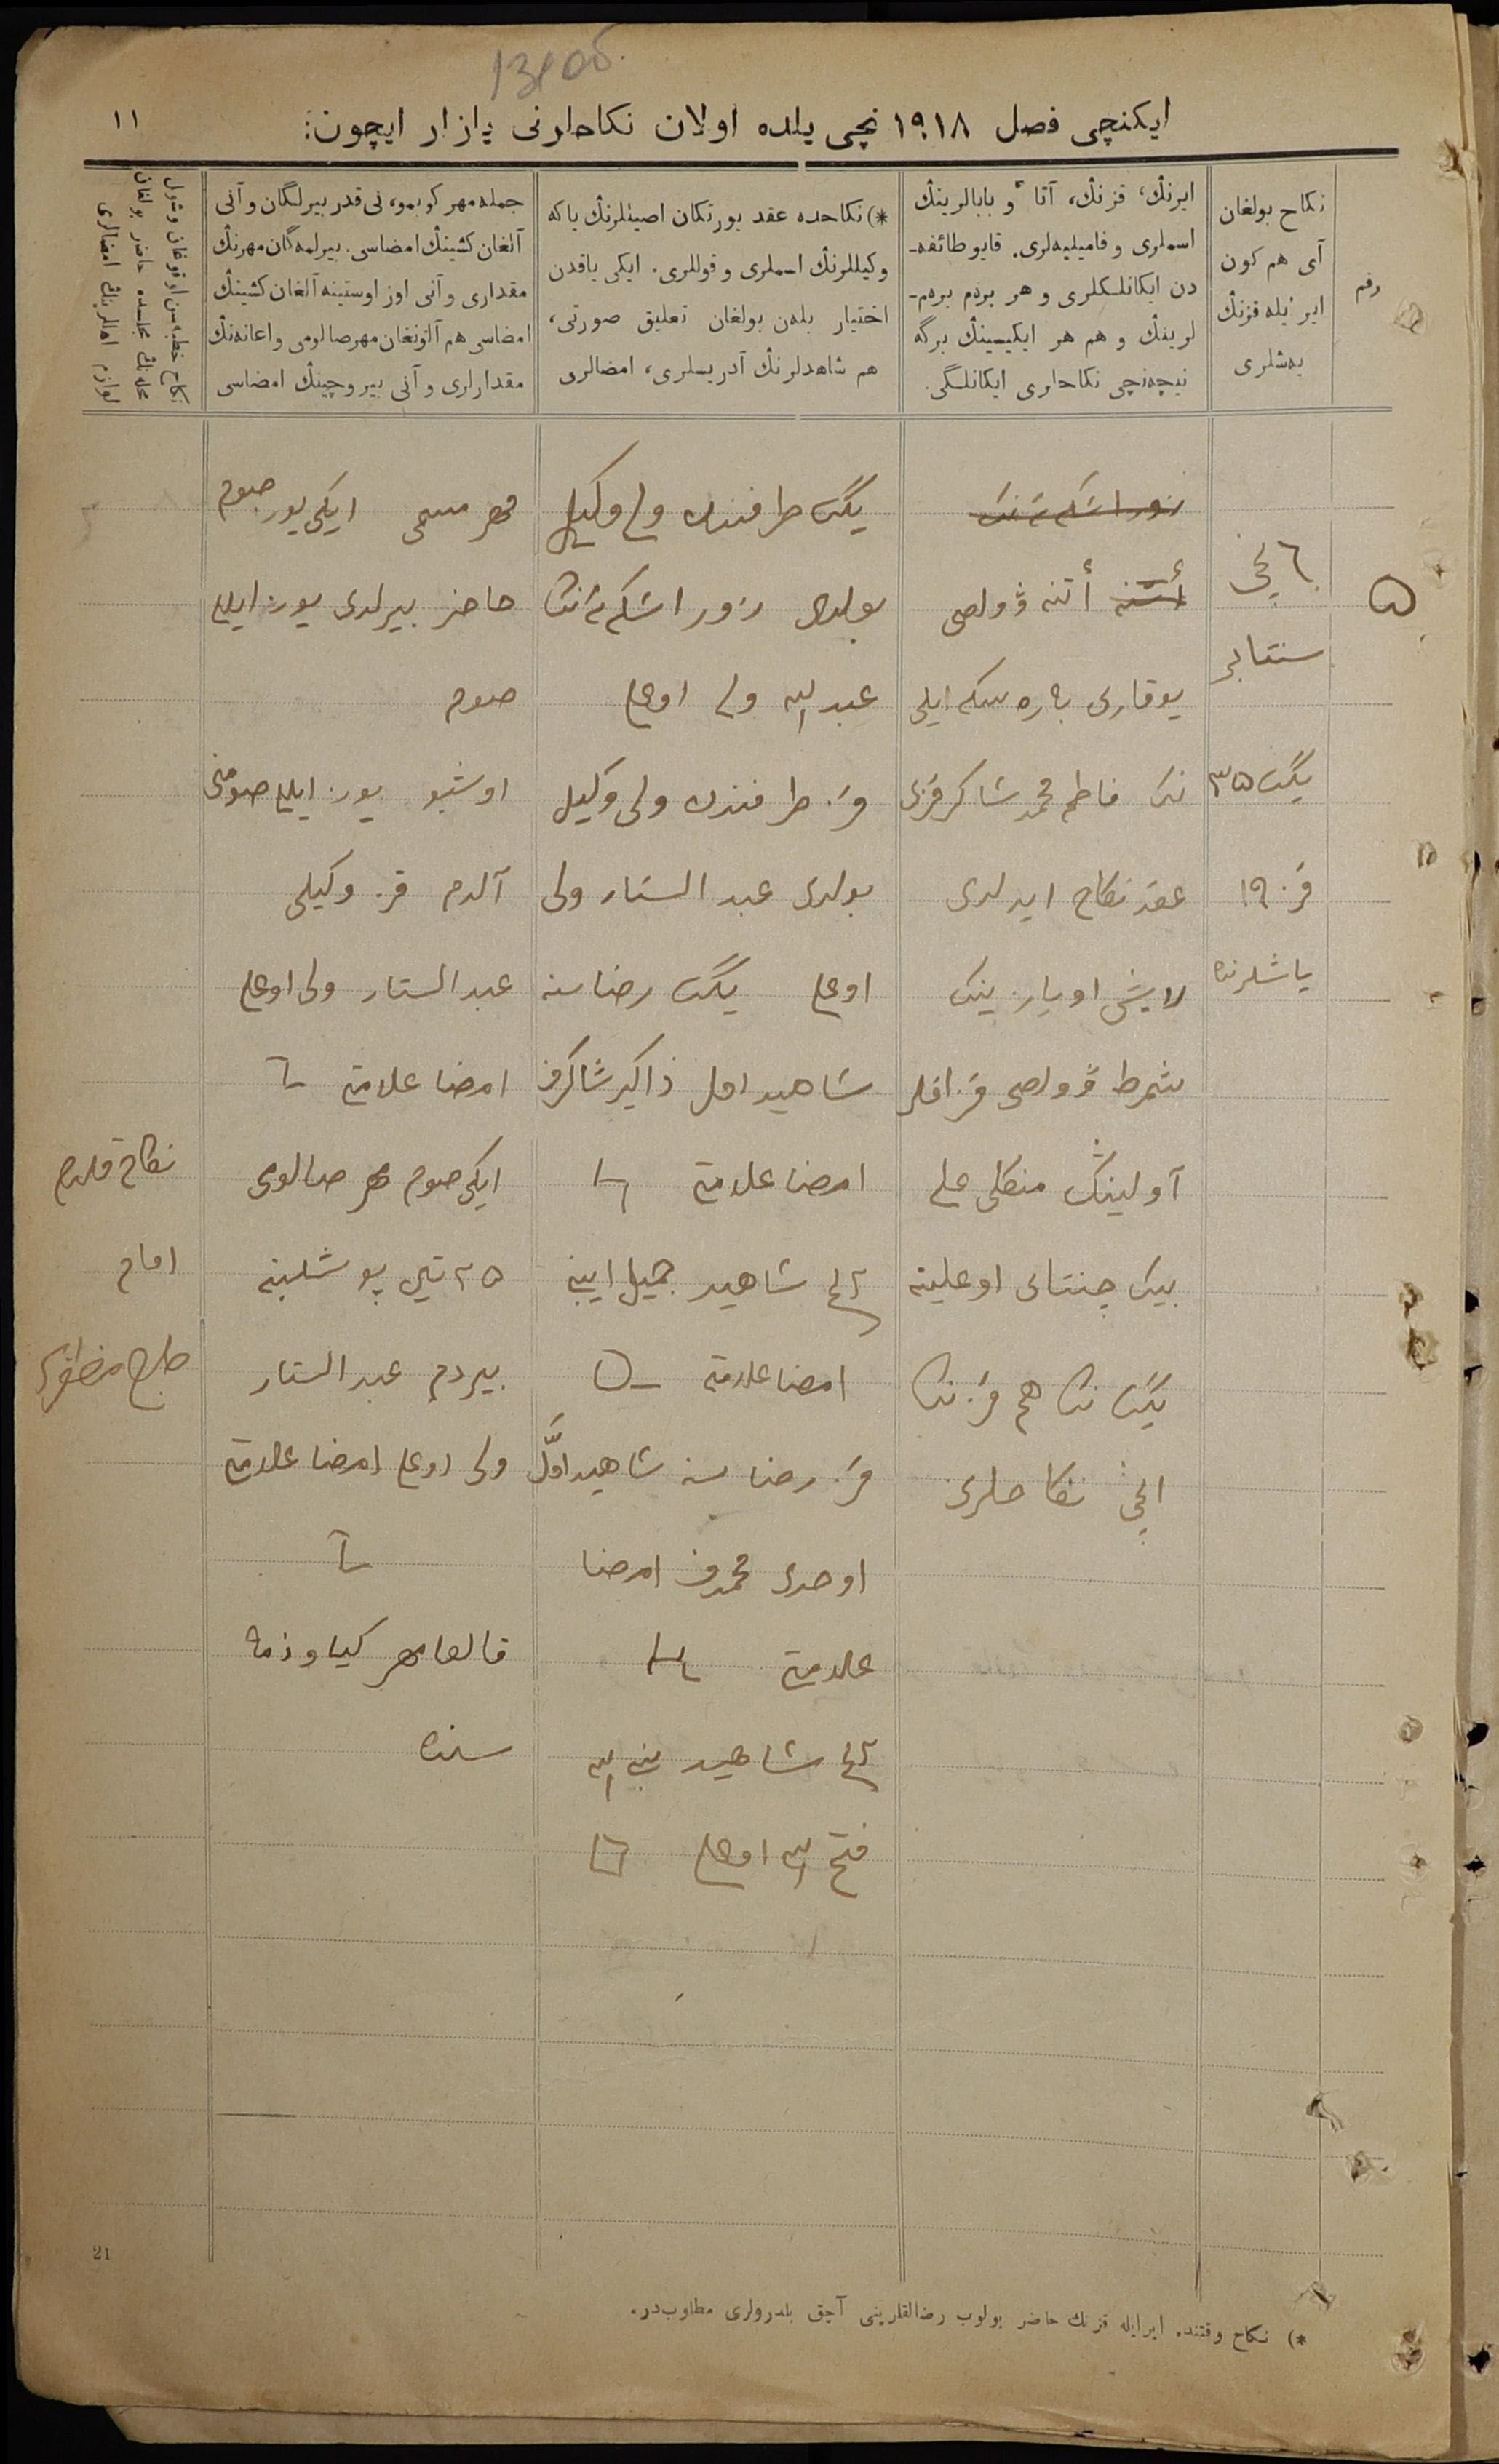 13об.
ایکنچی فصل ١٩١٨ نچی یلده اولان نکاحلرنی یازار ایچون:
١١
رقم
نکاح بولغان
آی هم کون
ایر ئیله قزنڭ
یەشلری
ایرنڭ، قزنڭ، آتا و بابالرینڭ
اسملری و فامیلیەلری. قایو طائفه-
دن ایکانلکلری و هر بردم بردم-
لرینڭ و هم هر ایکیسینڭ برگه
نیچەنچی نکاحلری ایکانلگی.
*) نکاحده عقد یورتکان اصیللرنڭ یاکه
وکیللرنڭ اسملری و قوللری. ایکی یاقدن
اختیار بلەن بولغان تعلیق صورتی،
هم شاهدلرنڭ آدریسلری، امضالری
جمله مهر کوبمو، نی قدر بیرلگان و آنی
آلغان کشینڭ امضاسی. بیرلمەگان مهرنڭ
مقداری و آنی اوز اوستینه آلغان کشینڭ
امضاسی هم آلونغان مهر صالومی و اعانەنڭ
مقدارلری و آنی بیروچینڭ امضاسی
نکاح خطبەسن اوقوغان و شول
محلەنڭ مجلسده حاضر بولغان
لوازم اهللرینڭ امضالری
٥
٦ نچی
سنتابر
یگت ٣٥
قز ١٩
یاشلرنده
أتنه ڤولصی
یوقاری باره سکه ایلی
نڭ فاطمه محمد شاکر قزی
عقد نکاح ایدلدی
لایش اویازینڭ
شمرط ڤولصی قزاقلر
آولینڭ منکلی علی
بیک چنتای اوغلینه
یگت نڭ هم قز نڭ
انچی نکاحلری
یگت طرفندن ولی وکیل
بولدی
عبد الله ولی اوغلی
قز طرفندن ولی وکیل
بولدی عبد الستار ولی
اوغلی یگت رضاسنه
شاهید اول ذاکیر شاکرف
امضا علامتی
٢ نچی شاهید جمیل
امضا علامتی
قز رضاسنه شاهید اوّل
اوحدی محمدوف امضا
علامتی
٢ نچی شاهید
فتح الله اوغلی
مهر مسمی ایکی یوز صوم
حاضر بیرلدی یوز ایللی
صوم
اوشبو یوز ایللی صومنی
آلدم قز وکیلی
عبد الستار ولی اوغلی
امضا علامتی
ایکی صوم مهر صالومی
٢٥ تین پوشلینه
بیردم عبد الستار
ولی اوغلی امضا علامتی
قالغا مهر کیاو ذمه
سنده
نکاح قلدم
امام
21
*) نکاح وقتنده. ایر ایله قزنڭ حاضر بولوب رضالقلرینی آچق بلدرولری مطلوبدر.